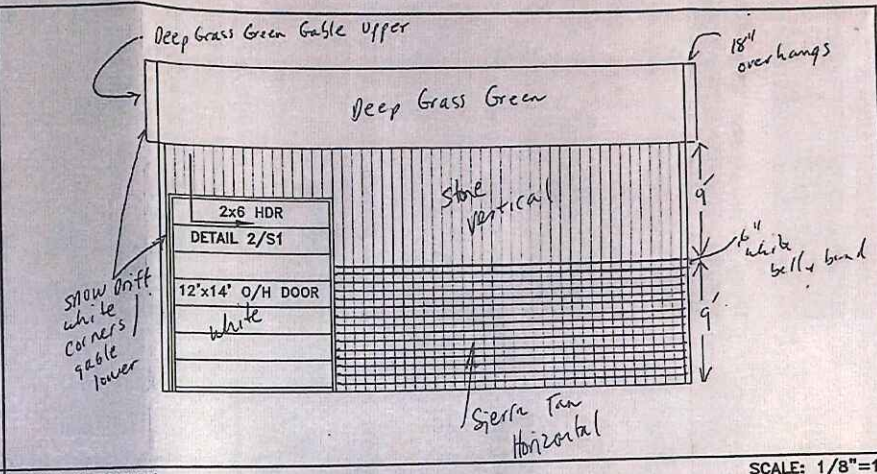 Deep Grass Green Gable Upper
18"
overhangs
Deep Grass Green
stone
vertical
9'
2x6 HDR
DETAIL 2/S1
6"
white
belly band
12'x14' O/H DOOR
white
snow Drift
white
corners
gable
lower
9'
Sierra Tan
Horizontal
SCALE: 1/8"=1